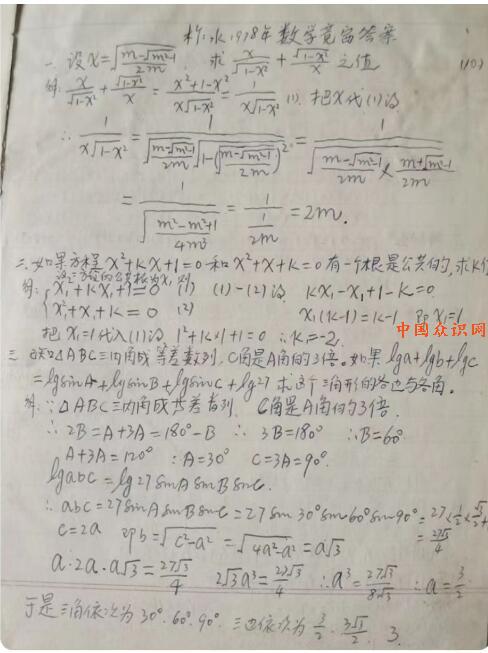 1978年数学竞宙答案
一. 设x=√((m-√(m²-1))/2m) 求 x/√(1-x²) + √(1-x²)/x 之值 (10)
解: x/√(1-x²) + √(1-x²)/x = (x²+1-x²)/(x√(1-x²)) = 1/(x√(1-x²)) (1). 把x代(1)得
∴ 1/(x√(1-x²)) = 1/(√((m-√(m²-1))/2m) √(1-(√((m-√(m²-1))/2m))²)) = 1/√((m-√(m²-1))/2m × (m+√(m²-1))/2m)
= 1/√((m²-m²+1)/4m²) = 1/(1/2m) = 2m.
二.如果方程 x²+kx+1=0 和 x²+x+k=0 有一个根是公共的,求k
设二方程的公共根为x₁则
解: {x₁²+kx₁+1=0 (1) (1)-(2)得 kx₁-x₁+1-k=0
x₁²+x₁+k=0 (2) x₁(k-1)=k-1 即x₁=1
中国众识网
把x₁=1代入(1)得 1²+k·1+1=0 ∴k=-2.
三 △ABC三内角成等差数列,C角是A角的3倍。如果 lga+lgb+lgc
=lgsinA+lgsinB+lgsinC+lg27 求这个三角形的各边与各角。
解: ∵△ABC三内角成等差数列. C角是A角的3倍.
∴2B=A+3A=180°-B ∴ 3B=180° ∴B=60°
A+3A=120° ∴A=30° C=3A=90°.
lgabc=lg27sinAsinBsinC.
∴abc=27sinAsinBsinC=27sin30°sin60°sin90°=27×1/2×√3/2
=27√3/4
c=2a 即b=√(c²-a²)=√(4a²-a²)=a√3
a·2a·a√3=27√3/4 2√3a³=27√3/4 ∴a³=27√3/8√3 ∴a=3/2
于是三角依次为30°.60°.90°. 三边依次为 3/2. 3√3/2. 3.